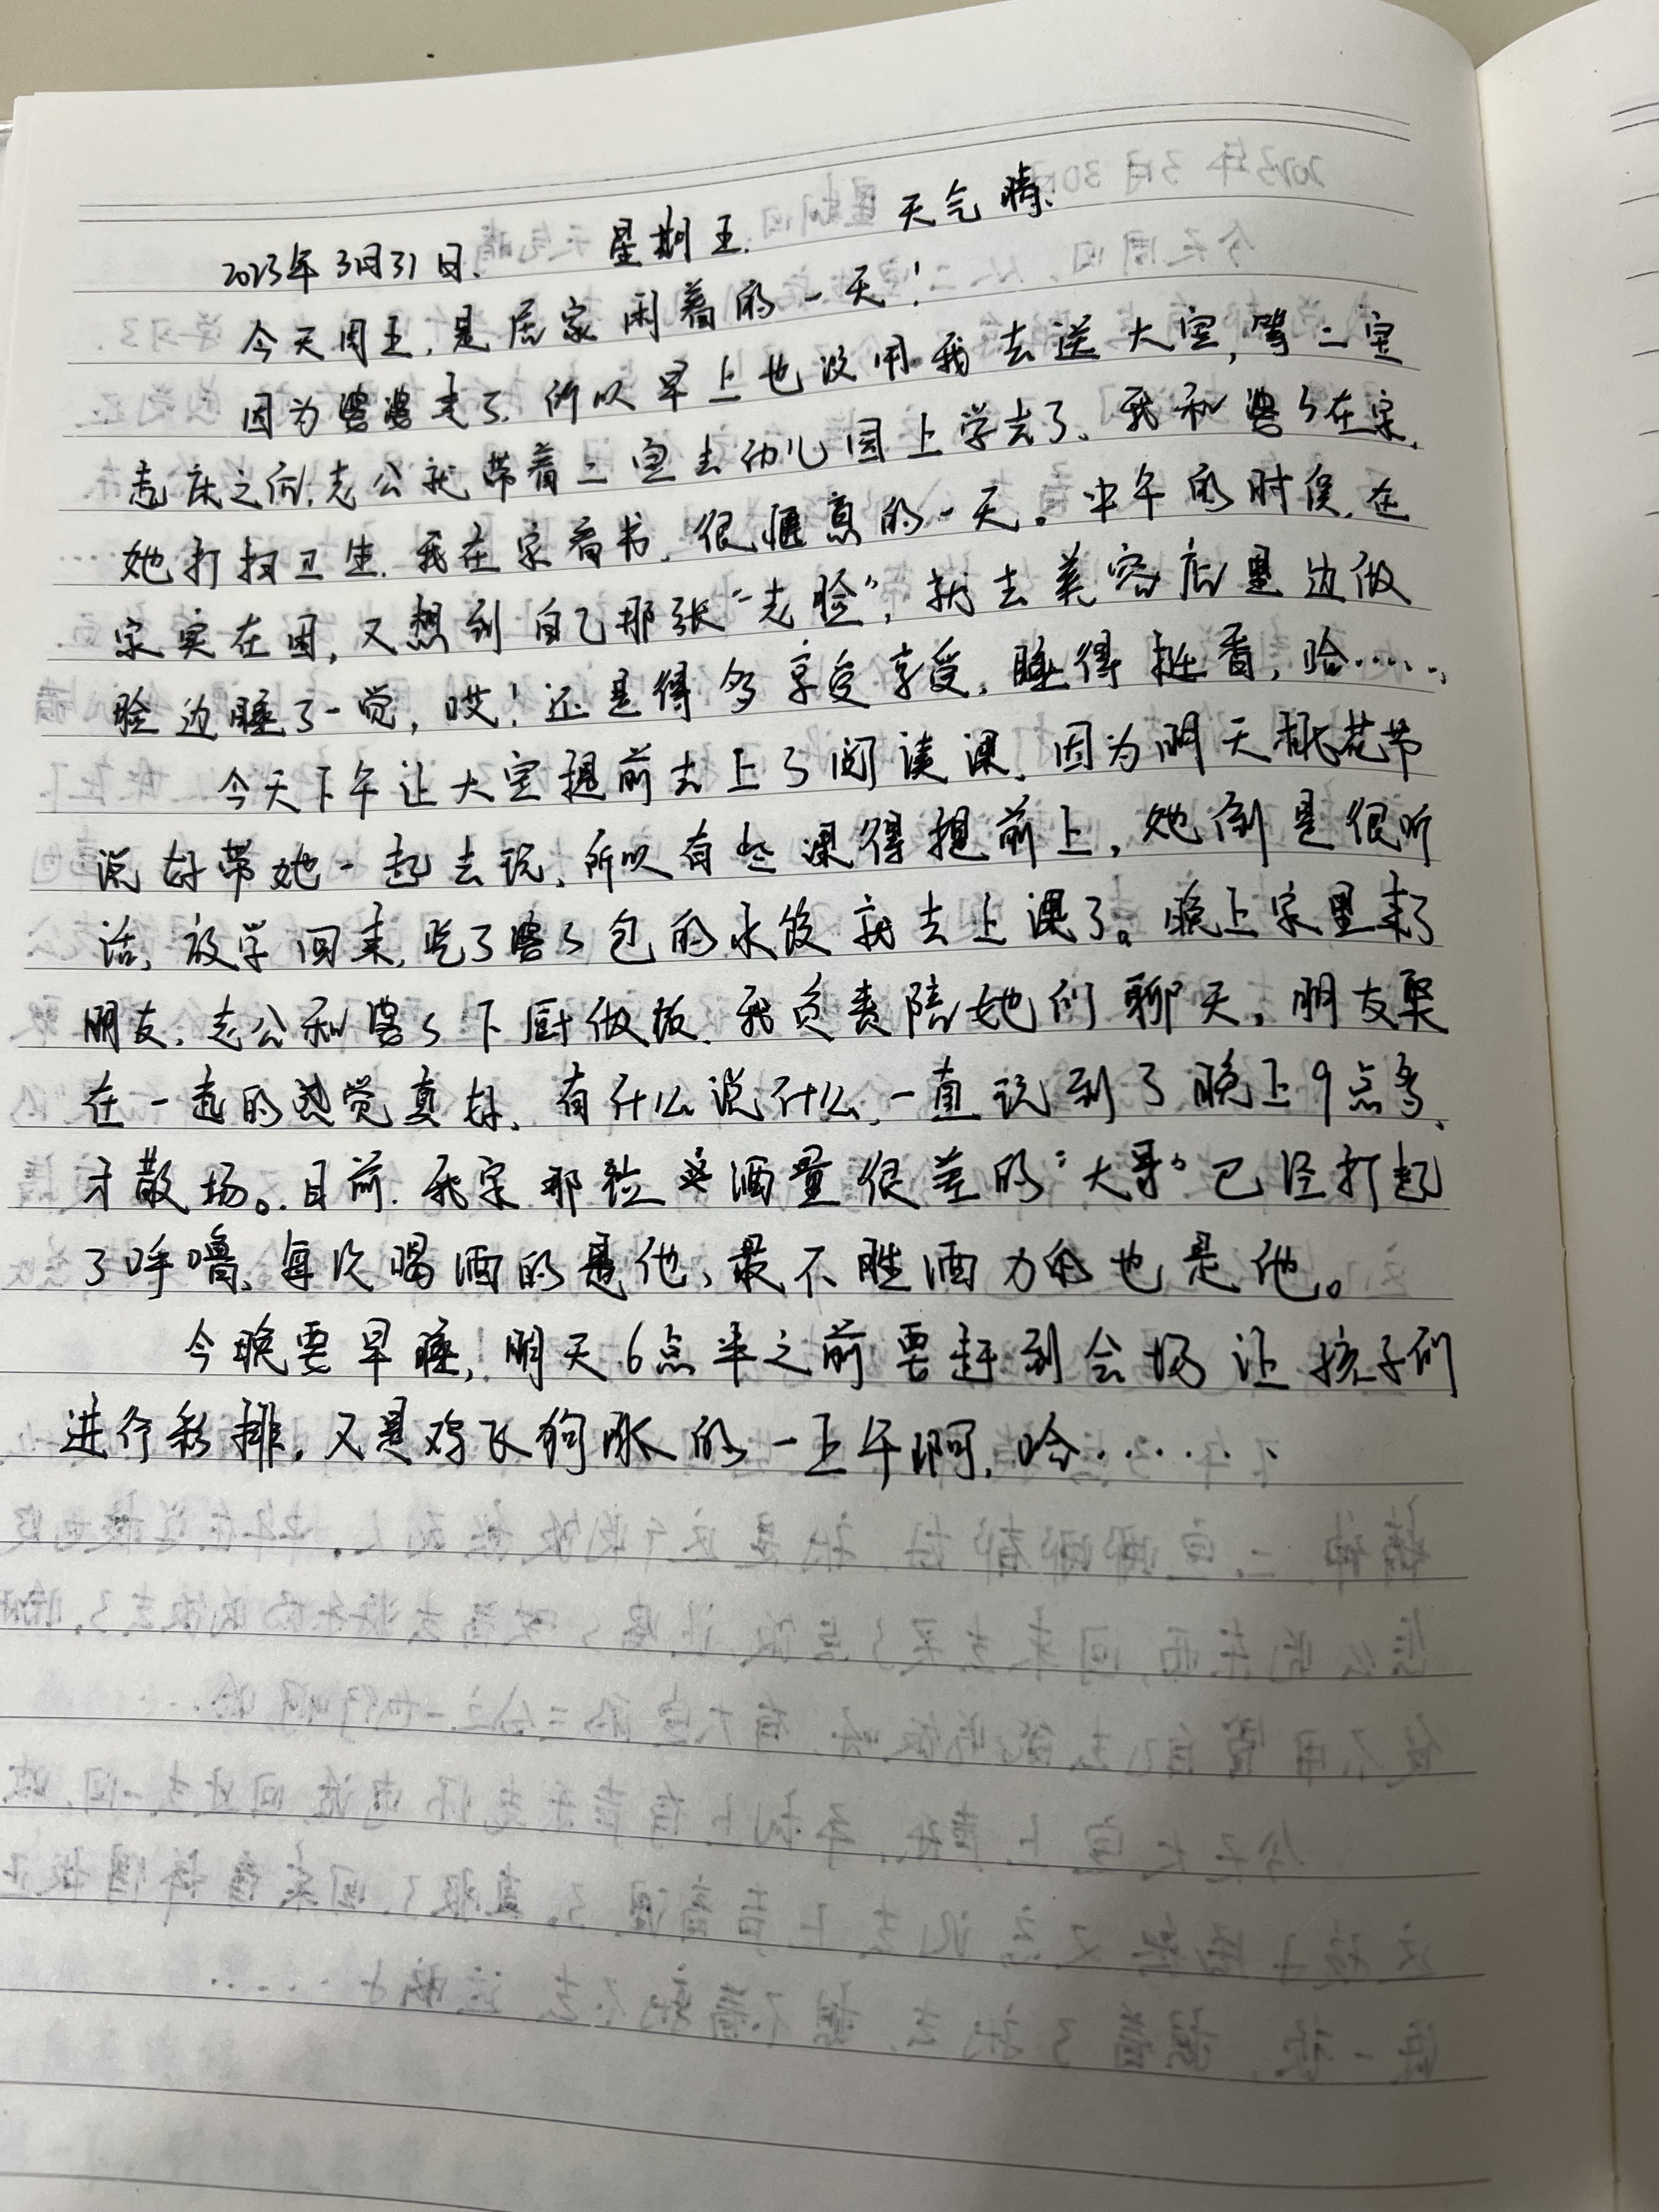 2023年3月31日. 星期五. 天气晴.
今天周五,是居家闲着的一天!
因为婆婆来了.所以早上也没用我去送大宝,等二宝
起床之后,老公就带着二宝去幼儿园上学去了、我和婆々在家,
她打扫卫生.我在家看书.很惬意的一天。中午的时候,在
家实在困,又想到自己那张“老脸”,就去美容店里边做
脸边睡了一觉,哎!还是得多享受享受,睡得挺香,哈……
今天下午让大宝提前去上了阅读课,因为明天桃花节
说好带她一起去玩,所以有些课得提前上,她倒是很听
话,放学回来,吃了婆々包的水饺就去上课了。晚上家里来了
朋友,老公和婆々下厨做饭.我负责陪她们聊天,朋友聚
在一起的感觉真好,有什么说什么,一直玩到了晚上9点多、
才散场。目前.我家那位酒量很差的“大哥”已经打起
了呼噜,每次喝酒的是他、最不胜酒力的也是他。
今晚要早睡,明天6点半之前要赶到会场让孩子们
进行彩排,又是鸡飞狗跳的一上午啊,哈………